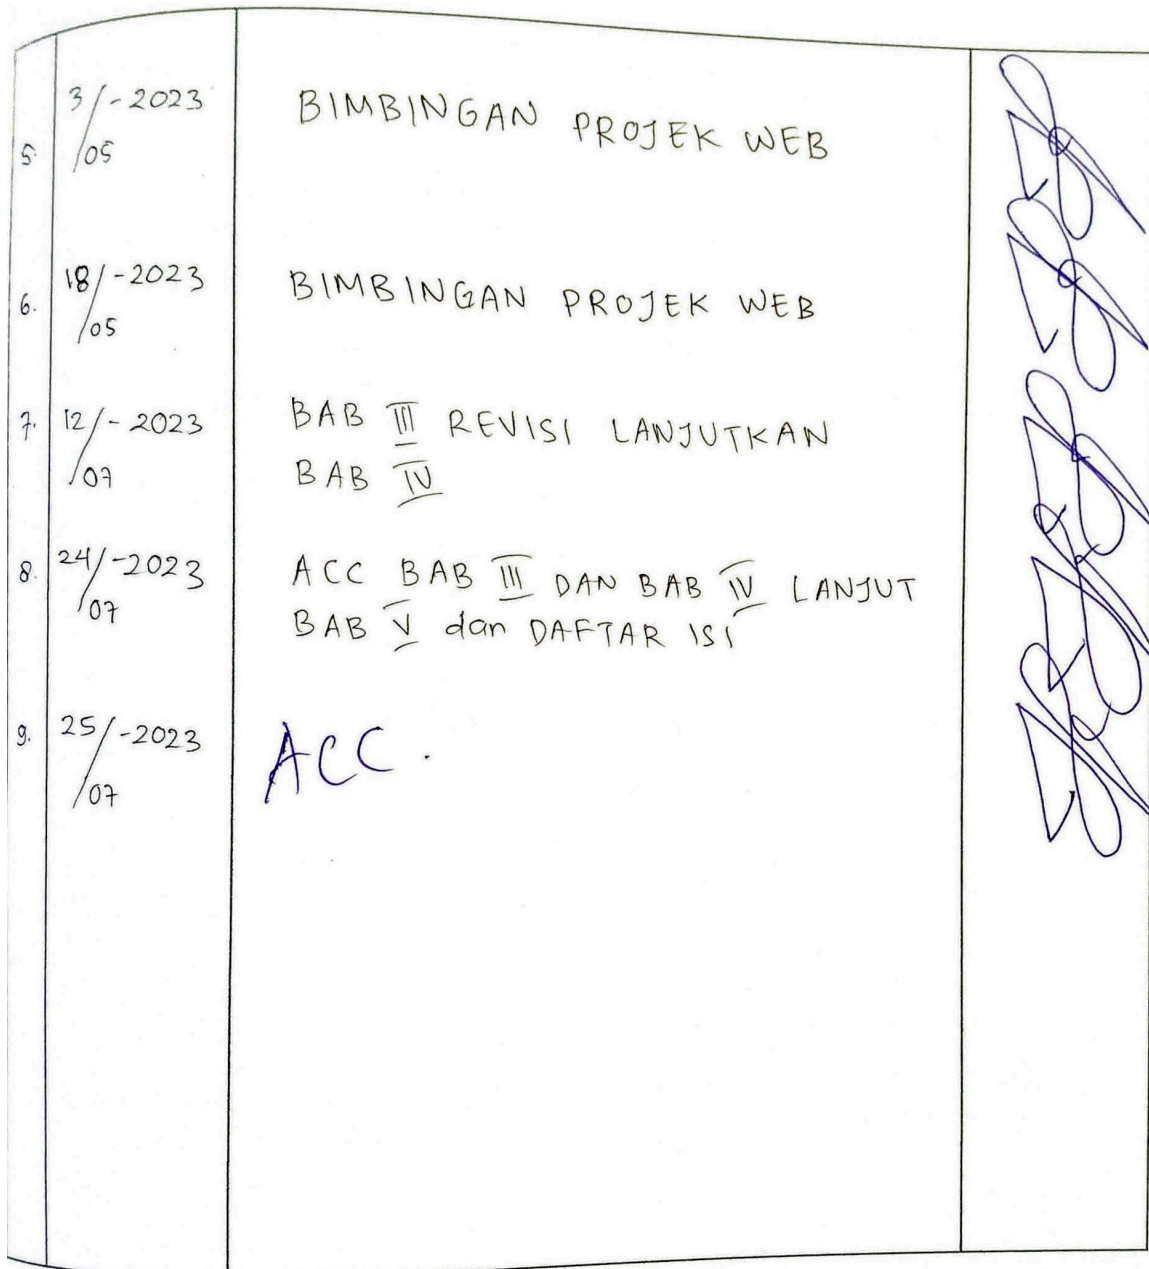 5. 3/05-2023 BIMBINGAN PROJEK WEB
6. 18/05-2023 BIMBINGAN PROJEK WEB
7. 12/07-2023 BAB III REVISI LANJUTKAN
BAB IV
8. 24/07-2023 ACC BAB III DAN BAB IV LANJUT
BAB V dan DAFTAR ISI
9. 25/07-2023 ACC.